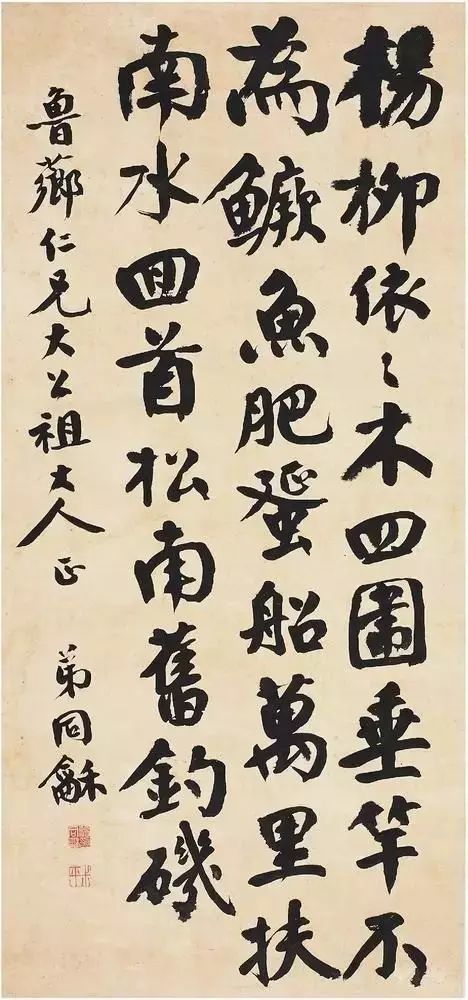 楊柳依〻木四圍垂竿不
為鱖魚肥蜑船萬里扶
南水回首松南舊釣磯
魯薌仁兄大公祖大人正
弟同龢